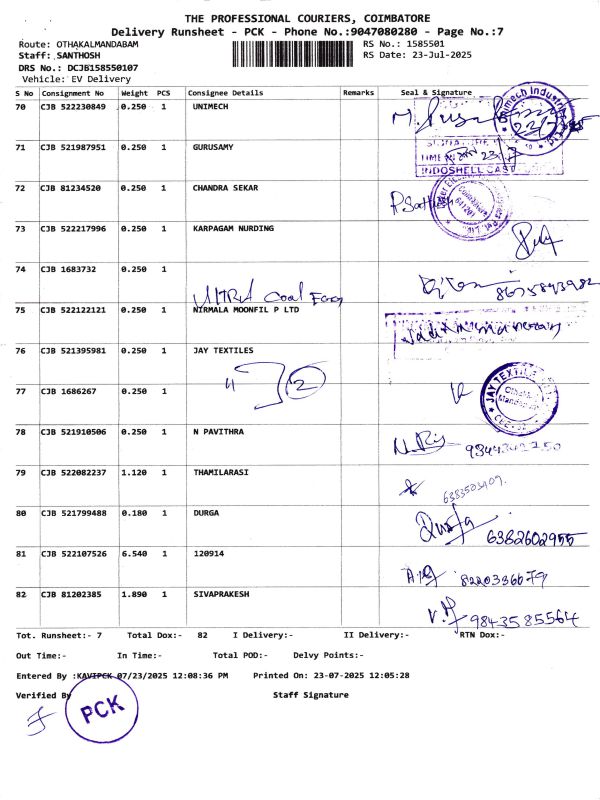 THE PROFESSIONAL COURIERS, COIMBATORE
Delivery Runsheet - PCK - Phone No.:9047080280 - Page No.:7
Route: OTHAKALMANDABAM
RS No.: 1585501
Staff: SANTHOSH
RS Date: 23-Jul-2025
DRS No.: DCJB158550107
Vehicle: EV Delivery
S No Consignment No Weight PCS Consignee Details Remarks Seal & Signature
70 CJB 522230849 0.250 1 UNIMECH
71 CJB 521987951 0.250 1 GURUSAMY
INDOSHELL CAST
72 CJB 81234520 0.250 1 CHANDRA SEKAR
73 CJB 522217996 0.250 1 KARPAGAM NURDING
74 CJB 1683732 0.250 1
8675843982
75 CJB 522122121 0.250 1 NIRMALA MOONFIL P LTD
76 CJB 521395981 0.250 1 JAY TEXTILES
" 2
77 CJB 1686267 0.250 1
JAY TEXTILE
78 CJB 521910506 0.250 1 N PAVITHRA
79 CJB 522082237 1.120 1 THAMILARASI
80 CJB 521799488 0.180 1 DURGA
Durga 6382602955
81 CJB 522107526 6.540 1 120914
8220336679
82 CJB 81202385 1.890 1 SIVAPRAKESH
9843585564
Tot. Runsheet:- 7 Total Dox:- 82 I Delivery:- II Delivery:- RTN Dox:-
Out Time:- In Time:- Total POD:- Delvy Points:-
Entered By :KAVIPCK 07/23/2025 12:08:36 PM Printed On: 23-07-2025 12:05:28
Verified By Staff Signature
PCK